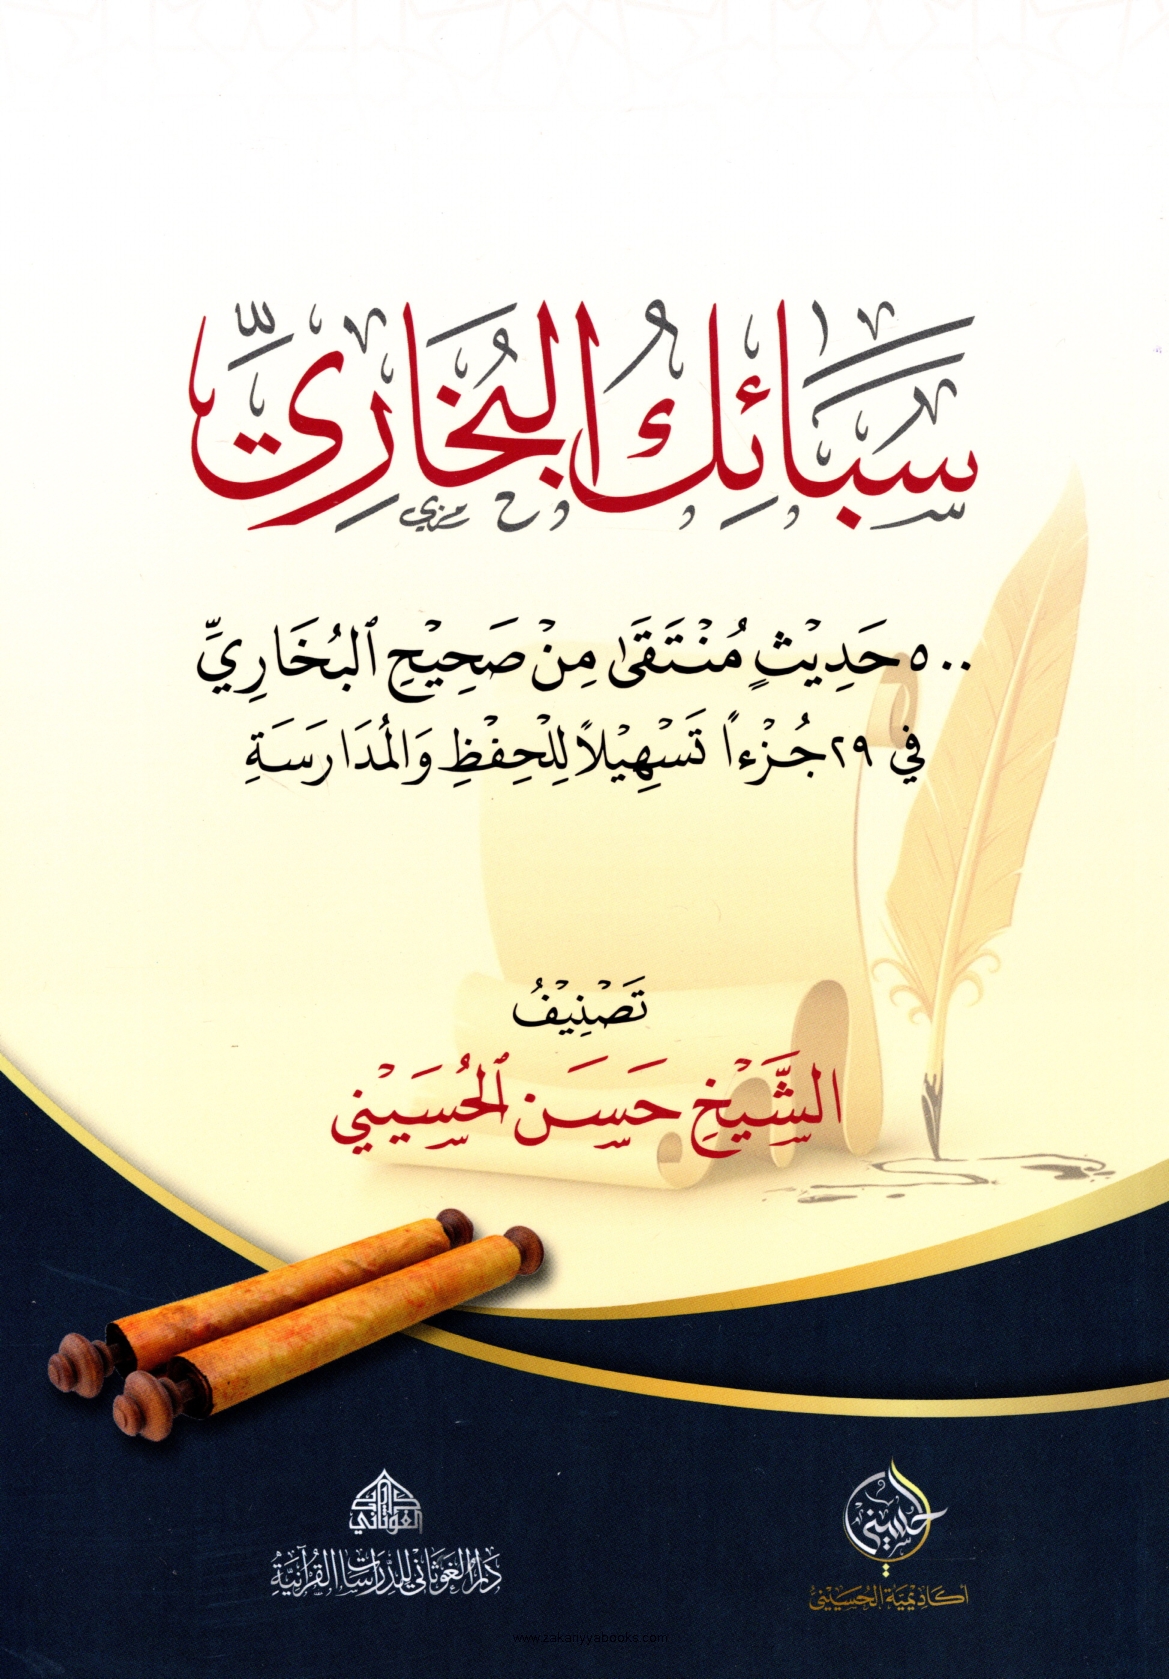 سَبَائِكُ البُخَارِيِّ
٥٠٠ حَدِيْثٍ مُنْتَقَىٰ مِنْ صَحِيْحِ ٱلبُخَارِيِّ
فِي ٢٩ جُزْءاً تَسْهِيْلاً لِلْحِفْظِ وَالمُدَارَسَةِ
تَصْنِيْفُ
الشَّيْخِ حَسَن ٱلحُسَيْنِي
الحسيني
أكاديمية الحسيني
دار الغوثاني
دار الغوثاني للدراسات القرآنية
www.zakariyyabooks.com